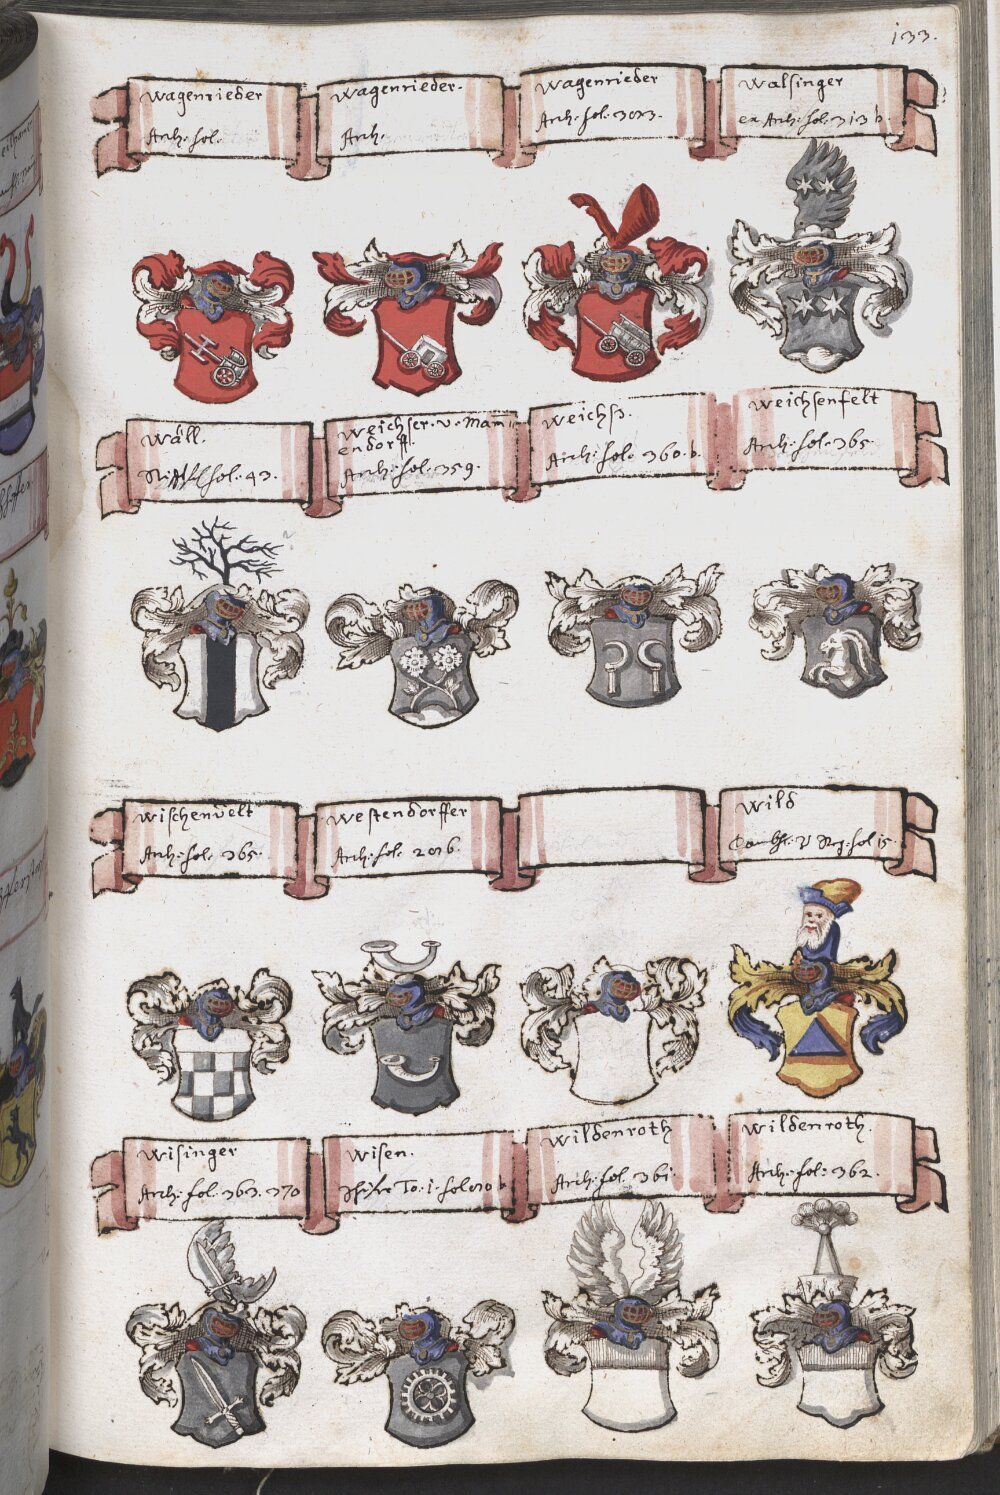 133.
Wagenrieder
Arch. fol.
Wagenrieder.
Arch.
Wagenrieder
Arch. fol.
Walsinger
ex Arch. fol. 313 b.
Wäll.
fol. 43.
Weichser. v. Mam
endorff.
Arch. fol. 359.
Weichs.
Arch. fol. 360. b.
Weichsenfelt
Arch. fol. 365.
Wischenvelt
Arch. fol. 365.
Westendorffer
Arch. fol.
Wild
fol 15
Wisinger
Arch. fol. 363. 370
Wisen.
To. 1. fol
Wildenroth
Arch. fol. 361
Wildenroth.
Arch. fol. 362.